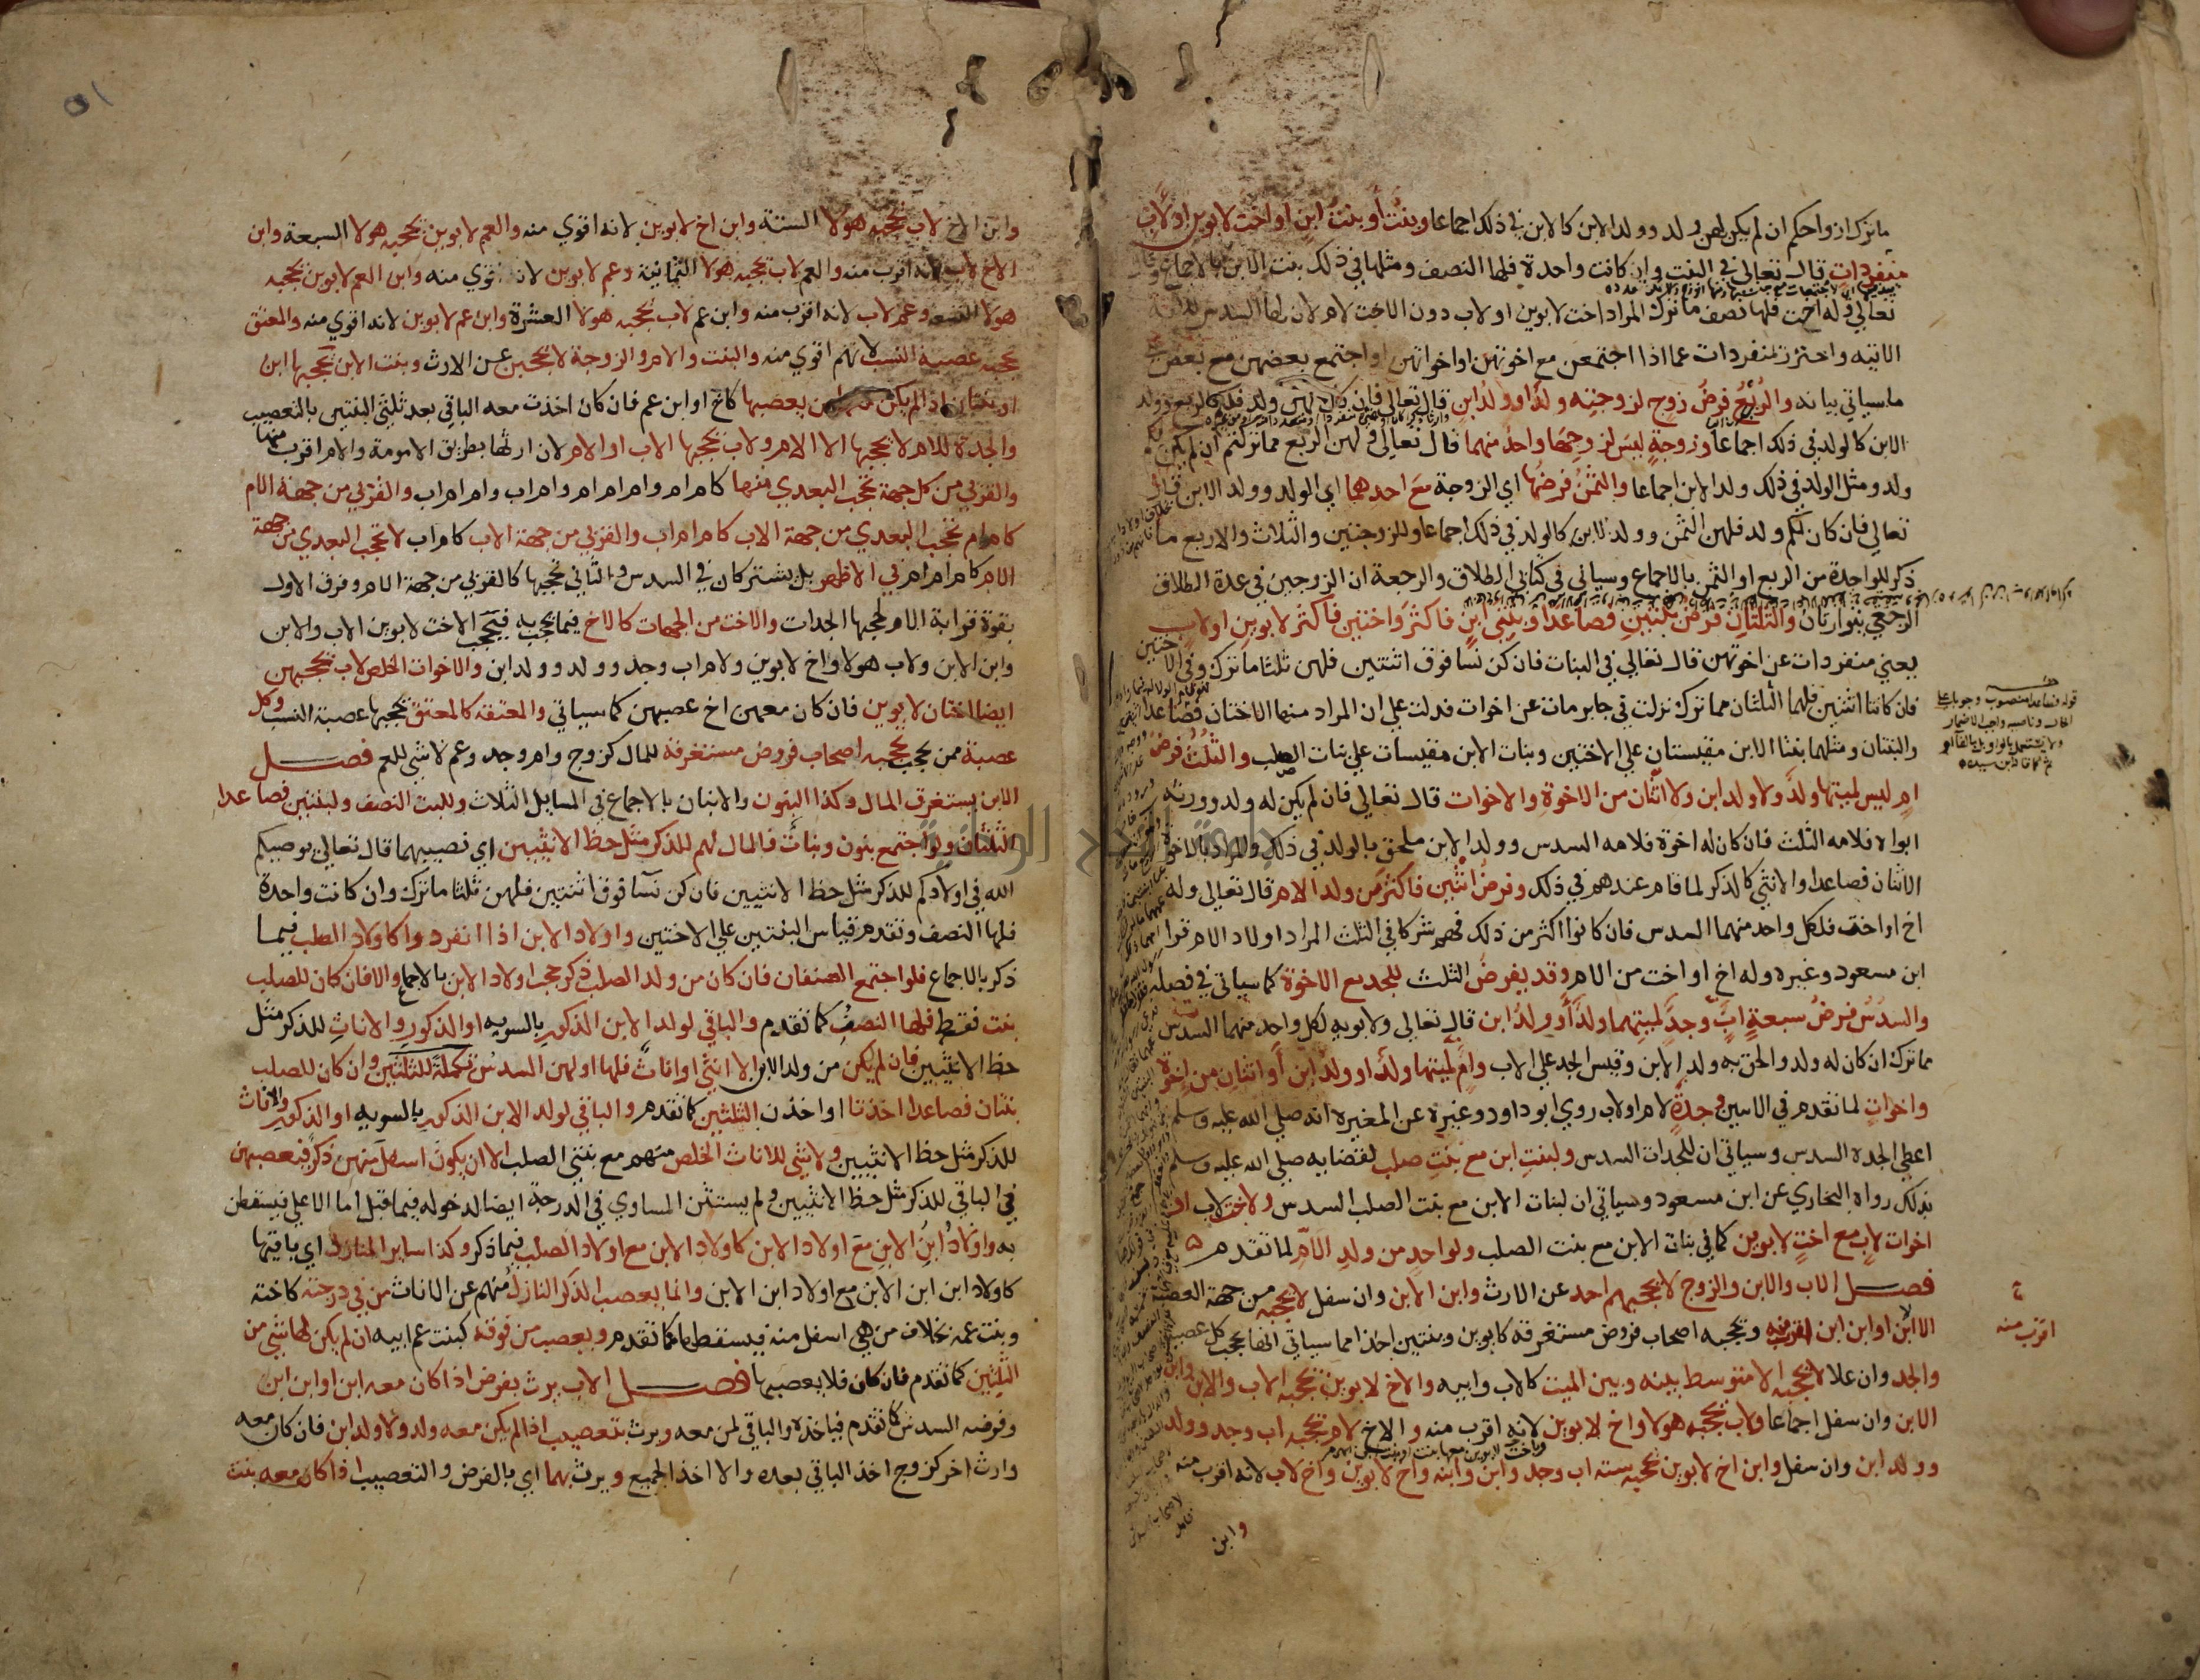 ما ترك ازواجكم ان لم يكن لهن ولد وولد الابن كالابن في ذلك اجماعا وبنت أو بنت ابن او اخت لابوين او لاب
منفردات قال تعالى في البنت وان كانت واحدة فلها النصف ومثلها في ذلك بنت الابن بالاجماع وقال
تعالي وله اخت فلها نصف ما ترك المراد اخت لابوين او لاب دون الاخت لام لان لها السدس للاية
الاتيه واحترز بمنفردات عما اذا اجتمعن مع اخوتهن او اخواتهن او اجتمع بعضهن مع بعض
ما سياتي بيانه والربع فرض زوج لزوجته ولد او ولد ابن قال تعالى فان كان لهن ولد فلكم الربع وولد
الابن كالولد في ذلك اجماعا وزوجة ليس لزوجها واحد منهما قال تعالى ولهن الربع مما تركتم ان لم يكن لكم
ولد ومثل الولد في ذلك ولد الابن اجماعا والثمن فرضها اي الزوجة مع احدهما اي الولد وولد الابن قال
تعالي فان كان لكم ولد فلهن الثمن وولد الابن كالولد في ذلك اجماعا وللزوجتين والثلاث والاربع ما
ذكر للواحدة من الربع او الثمن بالاجماع وسياتي في كتابي الطلاق والرجعة ان الزوجين في عدة الطلاق
الرجعي يتوارثان والثلثان فرض بنتين فصاعدا وبنتي ابن فاكثر واختين فاكثر لابوين او لاب
يعني منفردات عن اخوتهن قال تعالي في البنات فان كن نسا فوق اثنتين فلهن ثلثا ما ترك وفي الاختين
فان كانتا اثنتين فلهما الثلثان مما ترك نزلت في جابر مات عن اخوات فدلت علي ان المراد منهما الاختان فصاعدا
والبنتان ومثلهما بنتا الابن مقيستان علي الاختين وبنات الابن مقيسات علي بنات الصلب والثلث فرض
ام ليس لميتها ولد ولا ولد ابن ولا اثنان من الاخوة والاخوات قال تعالي فان لم يكن له ولد وورثه
ابواه فلامه الثلث فان كان له اخوة فلامه السدس وولد الابن ملحق بالولد في ذلك والمراد بالاخوة
الاثنان فصاعدا والانثي كالذكر لما قام عندهم في ذلك وفرض اثنين فاكثر من ولد الام قال تعالي وله
اخ او اخت فلكل واحد منهما السدس فان كانوا اكثر من ذلك فهم شركا في الثلث المراد اولاد الام قرا
ابن مسعود وغيره وله اخ او اخت من الام وقد يفرض الثلث للجد مع الاخوة كما سياتي في فصله
والسدس فرض سبعة اب وجد لميتهما ولد أو ولد ابن قال تعالي ولابويه لكل واحد منهما السدس
مما ترك ان كان له ولد والحق به ولد الابن وقيس الجد علي الاب وام لميتها ولد او ولد ابن أو اثنان من اخوة
واخوات لما تقدم في الابين وجدة لام او لاب روي ابو داود وغيره عن المغيرة انه صلي الله عليه وسلم
اعطي الجدة السدس وسياتي ان للجدات السدس ولبنت ابن مع بنت صلب لقضايه صلي الله عليه وسلم
بذلك رواه البخاري عن ابن مسعود وسياتي ان لبنات الابن مع بنت الصلب السدس ولاخت لاب او
اخوات لاب مع اخت لابوين كما في بنات الابن مع بنت الصلب ولواحد من ولد الام لما تقدم
فصل الاب والابن والزوج لا يحجبهم احد عن الارث وابن الابن وان سفل لا يحجبه من جهة العصبة
الا ابن او ابن ابن اقرب منه ويحجبه اصحاب فروض مستغرقة كابوين وبنتين اخذا مما سياتي انها يحجب كل عصبة
والجد وان علا لا يحجبه الا متوسط بينه وبين الميت كالاب وابيه والاخ لابوين يحجبه الاب والابن وابن
الابن وان سفل اجماعا ولاب يحجبه هولا واخ لابوين لانه اقرب منه والاخ لام يحجبه اب وجد وولد
وولد ابن وان سفل وابن اخ لابوين يحجبه ستة اب وجد وابن وابنه واخ لابوين واخ لاب لانه اقرب منه
وابن
اقرب منه
وابن الاخ لاب يحجبه هولا الستة وابن اخ لابوين لانه اقوي منه والعم لابوين يحجبه هولا السبعة وابن
الاخ لاب لانه اقرب منه والعم لاب يحجبه هولا الثمانية وعم لابوين لانه اقوي منه وابن العم لابوين يحجبه
هولا التسعة وعم لاب لانه اقرب منه وابن عم لاب يحجبه هولا العشرة وابن عم لابوين لانه اقوي منه والمعتق
يحجبه عصبة النسب لانهم اقوي منه والبنت والام والزوجة لا يحجبن عن الارث وبنت الابن يحجبها ابن
او بنتان اذا لم يكن معها من يعصبها كاخ او ابن عم فان كان اخذت معه الباقي بعد ثلثي البنتين بالتعصيب
والجدة للام لا يحجبها الا الام ولاب يحجبها الاب او الام لان ارثها بطريق الامومة والام اقرب منها
والقربي من كل جهة تحجب البعدي منها كام ام وام ام ام وام اب وام ام اب والقربي من جهة الام
كام ام تحجب البعدي من جهة الاب كام ام اب والقربي من جهة الاب كام اب لا تحجب البعدي من جهة
الام كام ام ام في الاظهر بل يشتركان في السدس والثاني تحجبها كالقربي من جهة الام وفرق الاول
بقوة قرابة الام لحجبها الجدات والاخت من الجهات كالاخ فيما يحجب به فيحجب الاخت لابوين الاب والابن
وابن الابن ولاب هولا واخ لابوين ولام اب وجد وولد وولد ابن والاخوات الخلص لاب يحجبهن
ايضا اختان لابوين فان كان معهن اخ عصبهن كما سياتي والمعتقة كالمعتق يحجبها عصبة النسب وكل
عصبة ممن يحجب يحجبه اصحاب فروض مستغرقة للمال كزوج وام وجد وعم لا شي للعم فصل
الابن يستغرق المال وكذا البنون والابنان بالاجماع في المسايل الثلاث وللبنت النصف ولبنتين فصاعدا
الثلثان ولو اجتمع بنون وبنات فالمال لهم للذكر مثل حظ الانثيين اي نصيبهما قال تعالي يوصيكم
الله في اولادكم للذكر مثل حظ الانثيين فان كن نسآ فوق اثنتين فلهن ثلثا ما ترك وان كانت واحدة
فلها النصف وتقدم قياس البنتين علي الاختين واولاد الابن اذا انفردوا كاولاد الصلب فيما
ذكر بالاجماع فلو اجتمع الصنفان فان كان من ولد الصلب ذكر حجب اولاد الابن بالاجماع والا فان كان للصلب
بنت فقط فلها النصف كما تقدم والباقي لولد الابن الذكور بالسويه او الذكور والاناث للذكر مثل
حظ الانثيين فان لم يكن من ولد الابن الا انثي او اناث فلها او لهن السدس تكملة للثلثين وان كان للصلب
بنتان فصاعدا اخذتا او اخذن الثلثين كما تقدم والباقي لولد الابن الذكور بالسويه او الذكور والاناث
للذكر مثل حظ الانثيين ولا شي للاناث الخلص منهم مع بنتي الصلب الا ان يكون اسفل منهن ذكر فيعصبهن
في الباقي للذكر مثل حظ الانثيين ولم يستثن المساوي في الدرجة ايضا لدخوله فيما قبل اما الاعلي فيسقطن
به واولاد ابن الابن مع اولاد الابن كاولاد الابن مع اولاد الصلب فيما ذكر وكذا ساير المنازل اي باقيها
كاولاد ابن ابن الابن مع اولاد ابن الابن وانما يعصب الذكر النازل منهم عن الاناث من في درجته كاخته
وبنت عمه بخلاف من هي اسفل منه فيسقطها كما تقدم ويعصب من فوقه كبنت عم ابيه ان لم يكن لها شي من
الثلثين كما تقدم فان كان فلا يعصبها فصل الاب يرث بفرض اذا كان معه ابن او ابن ابن
وفرضه السدس كما تقدم فياخذه والباقي لمن معه ويرث بتعصيب اذا لم يكن معه ولد ولا ولد ابن فان كان معه
وارث اخر كزوج اخذ الباقي بعده والا اخذ الجميع ويرث بهما اي بالفرض والتعصيب اذا كان معه بنت